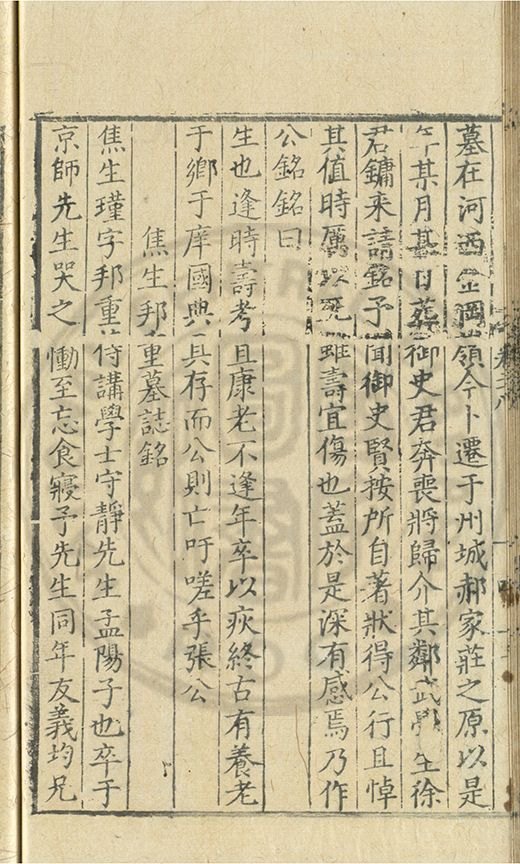 墓在河西金岡嶺今卜遷于州城郝家莊之原以是
年某月某日葬御史君奔喪將歸介其鄰武學生徐
君鏞来請銘予聞御史賢按所自著狀得公行且悼
其值時厲以死雖壽宜傷也蓋於是深有感焉乃作
公銘銘曰
生也逢時壽考且康老不逢年卒以疾終古有養老
于鄉于庠國典具存而公則亡吁嗟乎張公
焦生邦重墓誌銘
焦生瑾字邦重侍講學士守靜先生孟陽子也卒于
京師先生哭之慟至忘食寢予先生同年友義均兄